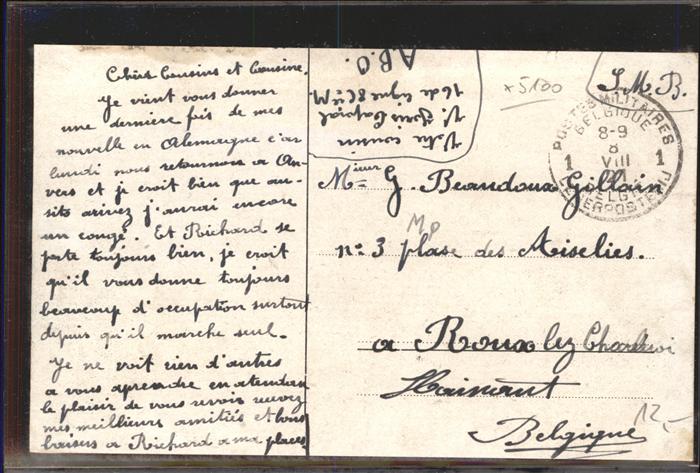 Chèrs Cousins et Cousine.
Je vient vous donner
une dernière fois de mes
nouvelle en Allemargne c'ar
lundi nous retournons a An-
vers et je croit bien que au-
sito arivez j'aurai encore
un congé. Et Richard se
porte toujours bien, je croit
qu'il vous donne toujours
beaucoup d'occupation surtout
depuis qu'il marche seul.
Je ne voit rien d'autres
a vous aprendre en atendan
le plaisir de vous revoir recevez
mes meilleurs amitiés et bons
baisers a Richard a ma place.
Votre cousin
Caporal
16 de ligne 8 Cie M
A.B.O.
x5100
S.M.B.
POSTES MILITAIRES
BELGIQUE
8-9
8
VIII
1 1
BELGIË
LEGERPOSTERIJ
Mieur G. Beaudoux Gillain
Mp
n° 3 plase des Miselies.
a Roux lez Charleroi
Hainaut
Belgique
12,-